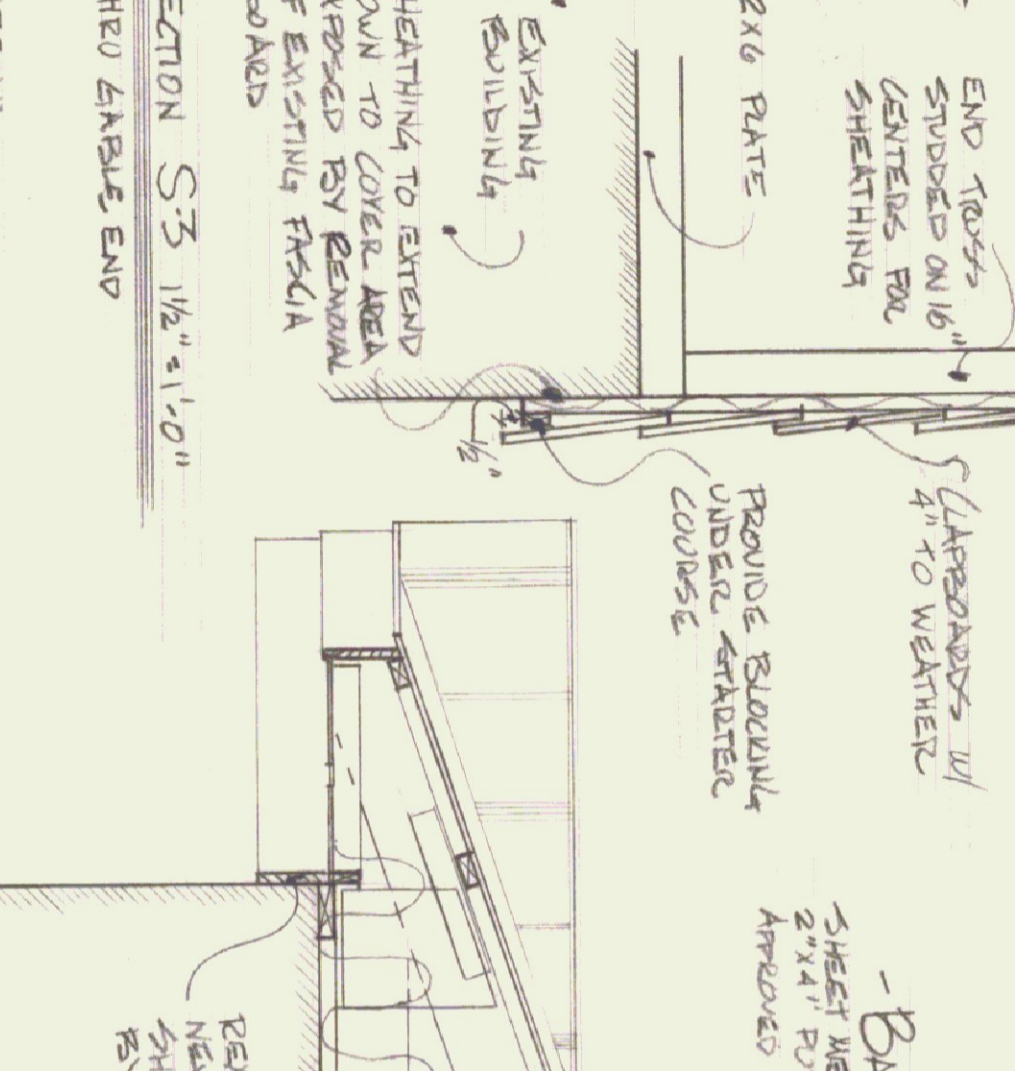 END TRUSS
STUDDED ON 16"
CENTERS FOR
SHEATHING
2X6 PLATE
EXISTING
BUILDING
HEATHING TO EXTEND
OWN TO COVER AREA
XPOSED BY REMOVAL
F EXISTING FASCIA
OARD
ECTION S-3 1½" = 1'-0"
HRU GABLE END
½"
CLAPBOARDS W/
4" TO WEATHER
PROVIDE BLOCKING
UNDER STARTER
COURSE
- BA
SHEET ME
2"X4" PU
APPROVED
REM
NEW
SH